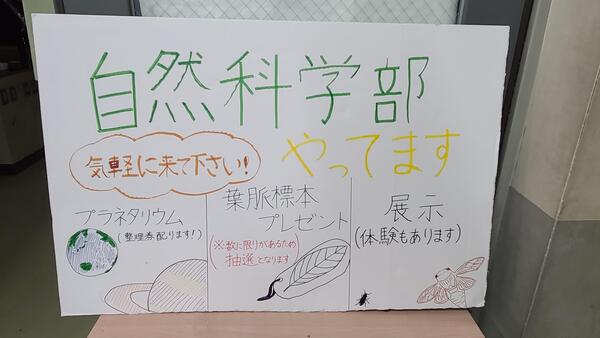 自然科学部
気軽に来て下さい!
やってます
プラネタリウム
(整理券配ります!)
葉脈標本
プレゼント
(※数に限りがあるため
抽選となります)
展示
(体験もあります)